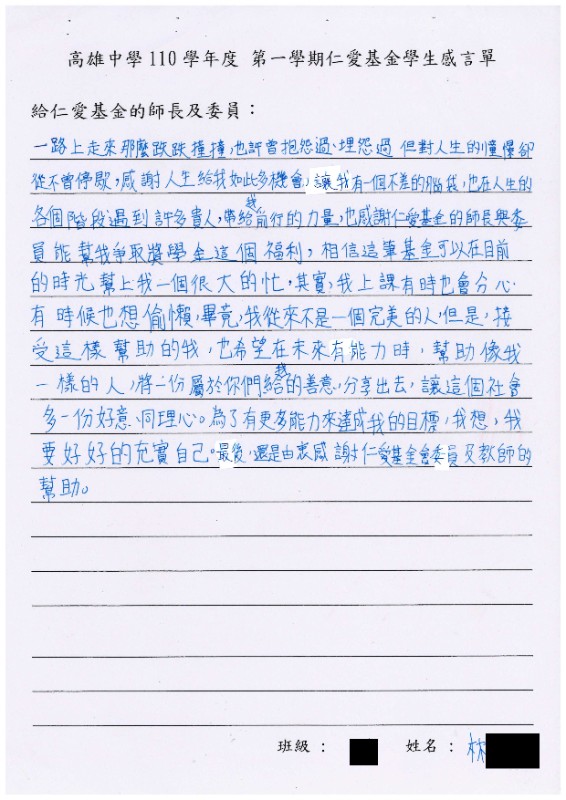 高雄中學 110 學年度 第一學期仁愛基金學生感言單
給仁愛基金的師長及委員：
一路上走來那麼跌跌撞撞,也許曾抱怨過、埋怨過 但對人生的憧憬卻
從不曾停歇,感謝人生給我如此多機會,讓我有一個不差的腦袋,也在人生的
各個階段遇到許多貴人,帶給我前行的力量,也感謝仁愛基金的師長與委
員能幫我爭取獎學金這個福利,相信這筆基金可以在目前
的時光幫上我一個很大的忙,其實,我上課有時也會分心
有時候也想偷懶,畢竟,我從來不是一個完美的人,但是,接
受這樣幫助的我,也希望在未來有能力時,幫助像我
一樣的人,將一份屬於你們給我的善意,分享出去,讓這個社會
多一份好意、同理心。為了有更多能力來達成我的目標,我想,我
要好好的充實自己。最後,還是由衷感謝仁愛基金會委員及教師的
幫助。
班級： 姓名：林